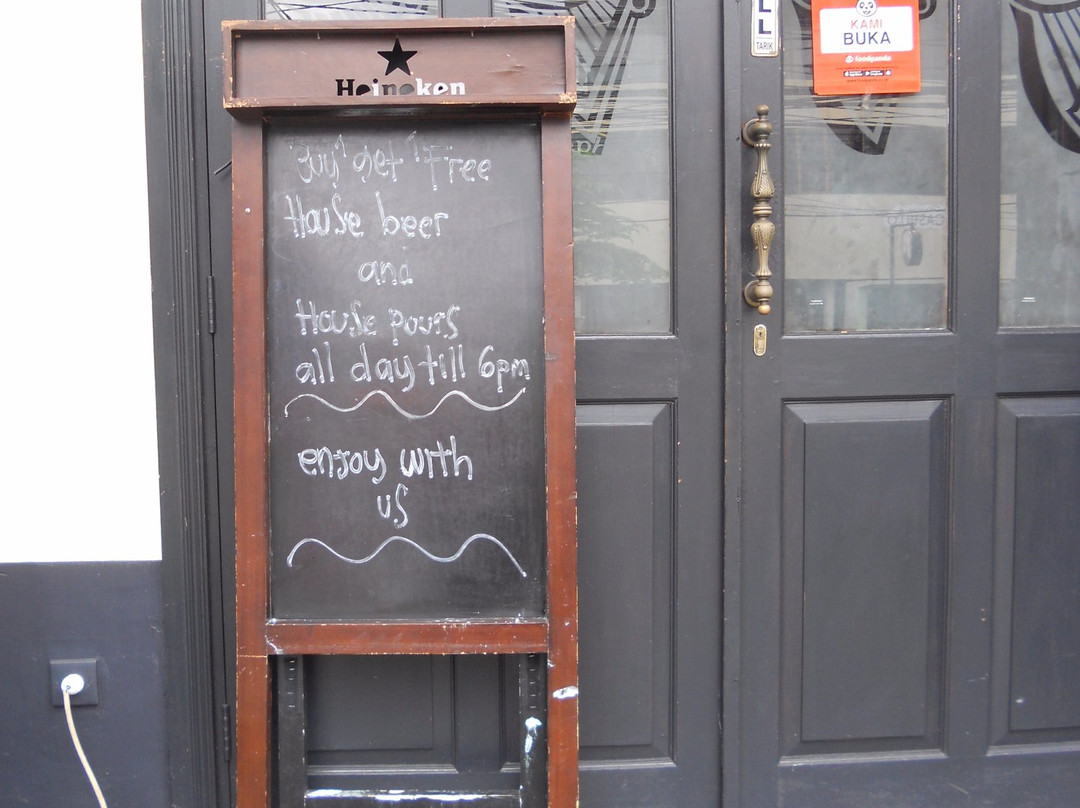 Heineken
Buy 1 get 1 Free
House beer
and
House pours
all day till 6pm
enjoy with
us
LL
TARIK
KAMI
BUKA
foodpanda